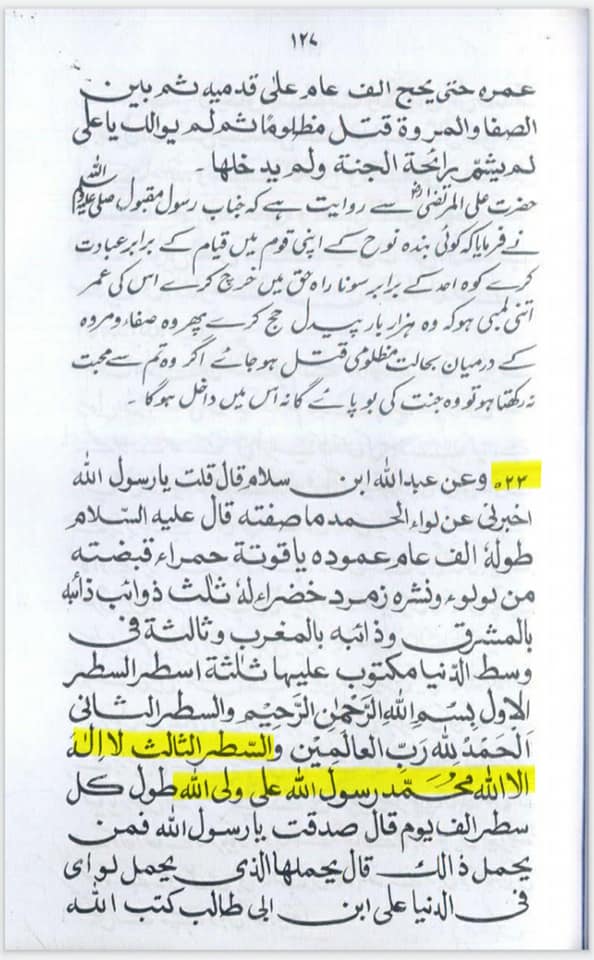 ۱۲۷
عمره حتى يحج الف عام على قدميه ثم بين
الصفا والمروة قتل مظلومًا ثم لم يوالك يا على
لم يشمّ رائحة الجنة ولم يدخلها ۔
حضرت علی المرتضیٰؓ سے روایت ہے کہ جناب رسول مقبول صلی اللہ علیہ وسلم
نے فرمایا کہ کوئی بندہ نوح کے اپنی قوم میں قیام کے برابر عبادت
کرے کوہ احد کے برابر سونا راہ حق میں خرچ کرے اس کی عمر
اتنی لمبی ہو کہ وہ ہزار بار پیدل حج کرے پھر وہ صفا و مروہ
کے درمیان بحالت مظلومی قتل ہو جائے اگر وہ تم سے محبت
نہ رکھتا ہو تو وہ جنت کی بو پائے گا نہ اس میں داخل ہو گا ۔
وعن عبد الله ابن سلام قال قلت يا رسول الله
اخبرنى عن لواء الحمد ما صفته قال عليه السّلام
طولهٗ الف عام عموده ياقوتة حمراء قبضته
من لولوء ونشره زمرد خضراء لهٗ ثلث ذوائب ذائبه
بالمشرق وذائبه بالمغرب وثالثة فى
وسط الدّنيا مكتوب عليها ثلثة اسطر السطر
الاول بِسْمِ اللهِ الرَّحْمٰنِ الرَّحِيْمِ والسطر الثانى
اَلْحَمْدُ لِلهِ رَبِّ العالَمِيْنَ والسّطر الثالث لا اِلٰهَ
الا الله محمّد رسول الله على ولى الله طول كل
سطر الف يوم قال صدقت يا رسول الله فمن
يحمل ذالك قال يحملها الذى يحمل لواى
فى الدنيا على ابن ابى طالب كتب الله